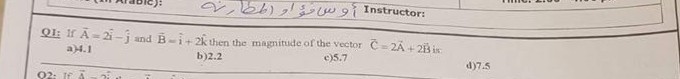 Arabic): Instructor:
Q1: If A⃗ = 2i - j and B⃗ = i + 2k then the magnitude of the vector C⃗ = 2A⃗ + 2B⃗ is:
a)4.1 b)2.2 c)5.7 d)7.5
Q2: If A⃗